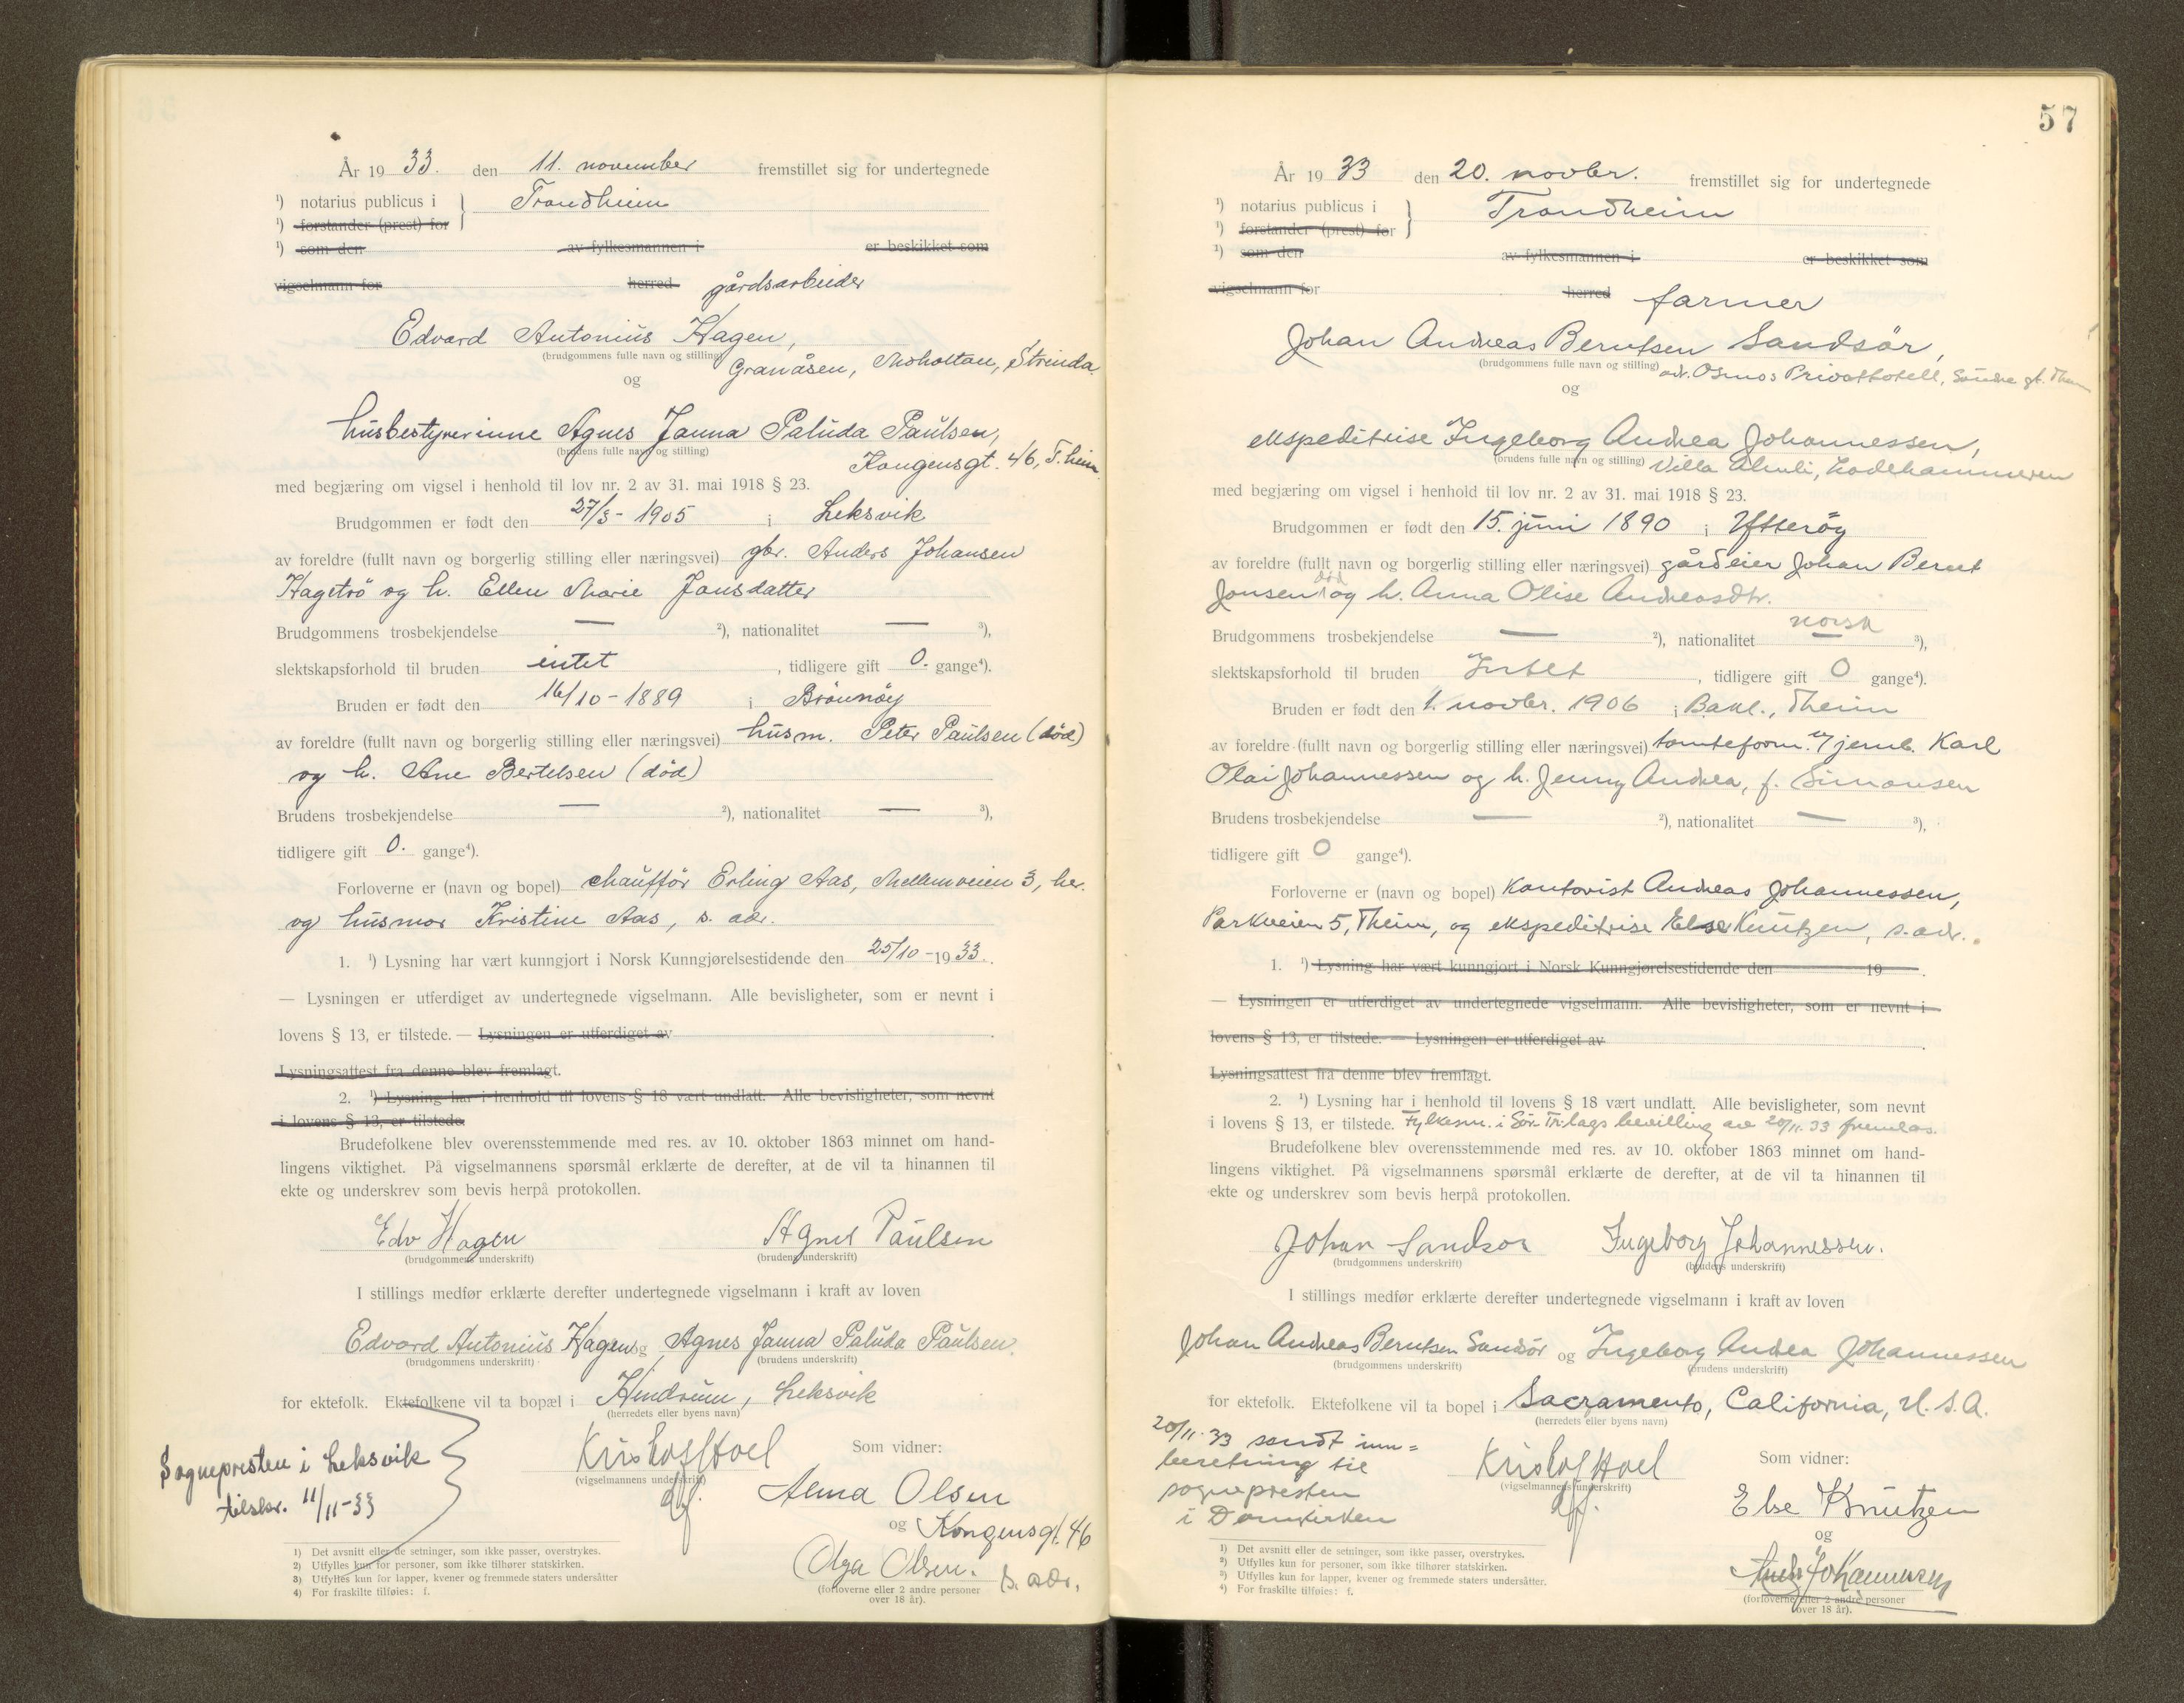 År 19 33. den 11. november fremstillet sig for undertegnede
¹) notarius publicus i } Trondheim
¹) forstander (prest) for
¹) som den av fylkesmannen i er beskikket som
vigselmann for herred gårdsarbeider
Edvard Antonius Hagen,
(brudgommens fulle navn og stilling)
Granåsen, Moholtan, Strinda
og
husbestyrerinne Agnes Janna Paluda Paulsen,
(brudens fulle navn og stilling)
Kongensgt. 46, T.heim
med begjæring om vigsel i henhold til lov nr. 2 av 31. mai 1918 § 23.
Brudgommen er født den 27/3 - 1905 i Leksvik
av foreldre (fullt navn og borgerlig stilling eller næringsvei) gbr. Anders Johansen
Hagetrø og h. Ellen Marie Jansdatter
Brudgommens trosbekjendelse — ²), nationalitet — ³),
slektskapsforhold til bruden intet , tidligere gift 0. gange⁴).
Bruden er født den 16/10 - 1889 i Brønnøy
av foreldre (fullt navn og borgerlig stilling eller næringsvei) husm. Peter Paulsen (død)
og h. Ane Bertelsen (død)
Brudens trosbekjendelse — ²), nationalitet — ³),
tidligere gift 0. gange⁴).
Forloverne er (navn og bopel) chauffør Erling Aas, Mellemveien 3, her.
og husmor Kristine Aas, s. adr.
1. ¹) Lysning har vært kunngjort i Norsk Kunngjørelsestidende den 25/10 - 19 33.
— Lysningen er utferdiget av undertegnede vigselmann. Alle bevisligheter, som er nevnt i
lovens § 13, er tilstede. — Lysningen er utferdiget av
Lysningsattest fra denne blev fremlagt.
2. ¹) Lysning har i henhold til lovens § 18 vært undlatt. Alle bevisligheter, som nevnt
i lovens § 13, er tilstede
Brudefolkene blev overensstemmende med res. av 10. oktober 1863 minnet om hand-
lingens viktighet. På vigselmannens spørsmål erklærte de derefter, at de vil ta hinannen til
ekte og underskrev som bevis herpå protokollen.
Edv Hagen Agnes Paulsen
(brudgommens underskrift) (brudens underskrift)
I stillings medfør erklærte derefter undertegnede vigselmann i kraft av loven
Edvard Antonius Hagen og Agnes Janna Paluda Paulsen.
(brudgommens underskrift) (brudens underskrift)
for ektefolk. Ektefolkene vil ta bopæl i Hindrum, Leksvik
(herredets eller byens navn)
Sognepresten i Leksvik
tilskr. 11/11-33
Kristof Hoel
(vigselmannens underskrift)
Som vidner:
Alma Olsen
og Kongensgt. 46
Olga Olsen. s. adr.
(forloverne eller 2 andre personer
over 18 år).
1) Det avsnitt eller de setninger, som ikke passer, overstrykes.
2) Utfylles kun for personer, som ikke tilhører statskirken.
3) Utfylles kun for lapper, kvener og fremmede staters undersåtter
4) For fraskilte tilføies: f.
57
År 19 33 den 20. novbr. fremstillet sig for undertegnede
¹) notarius publicus i } Trondheim
¹) forstander (prest) for
¹) som den av fylkesmannen i er beskikket som
vigselmann for herred farmer
Johan Andreas Berntsen Sandsør,
(brudgommens fulle navn og stilling) adr. Osmos Privathotell, Søndre gt. Theim
og
ekspeditrise Ingeborg Andrea Johannessen,
(brudens fulle navn og stilling) Villa Almli, Ladehammeren
med begjæring om vigsel i henhold til lov nr. 2 av 31. mai 1918 § 23.
Brudgommen er født den 15. juni 1890 i Ytterøy
av foreldre (fullt navn og borgerlig stilling eller næringsvei) gårdeier Johan Bernt
Jonsen død og h. Anna Olise Andreasdtr.
Brudgommens trosbekjendelse — ²), nationalitet norsk ³),
slektskapsforhold til bruden Intet , tidligere gift 0 gange⁴).
Bruden er født den 1. novbr. 1906 i Bakl., Theim
av foreldre (fullt navn og borgerlig stilling eller næringsvei) tomteform. v/jernb. Karl
Olai Johannessen og h. Jenny Andrea, f. Simonsen
Brudens trosbekjendelse — ²), nationalitet — ³),
tidligere gift 0 gange⁴).
Forloverne er (navn og bopel) Kontorist Andreas Johannessen,
Parkveien 5, Theim, og ekspeditrise Else Knutzen, s. adr.
1. ¹) Lysning har vært kunngjort i Norsk Kunngjørelsestidende den 19 .
— Lysningen er utferdiget av undertegnede vigselmann. Alle bevisligheter, som er nevnt i
lovens § 13, er tilstede. — Lysningen er utferdiget av
Lysningsattest fra denne blev fremlagt.
2. ¹) Lysning har i henhold til lovens § 18 vært undlatt. Alle bevisligheter, som nevnt
i lovens § 13, er tilstede. Fylkesm. i Sør-Tr.lags bevilling av 20/11. 33 fremlas.
Brudefolkene blev overensstemmende med res. av 10. oktober 1863 minnet om hand-
lingens viktighet. På vigselmannens spørsmål erklærte de derefter, at de vil ta hinannen til
ekte og underskrev som bevis herpå protokollen.
Johan Sandsor Ingeborg Johannessen.
(brudgommens underskrift) (brudens underskrift)
I stillings medfør erklærte derefter undertegnede vigselmann i kraft av loven
Johan Andreas Berntsen Sandsør og Ingeborg Andrea Johannessen
(brudgommens underskrift) (brudens underskrift)
for ektefolk. Ektefolkene vil ta bopel i Sacramento, California, U.S.A.
(herredets eller byens navn)
20/11-33 sendt inn=
beretning til
sognepresten
i Domkirken
Kristof Hoel
(vigselmannens underskrift)
Som vidner:
Else Knutzen
og
Andr Johannessen
(forloverne eller 2 andre personer
over 18 år).
1) Det avsnitt eller de setninger, som ikke passer, overstrykes.
2) Utfylles kun for personer, som ikke tilhører statskirken.
3) Utfylles kun for lapper, kvener og fremmede staters undersåtter.
4) For fraskilte tilføies: f.